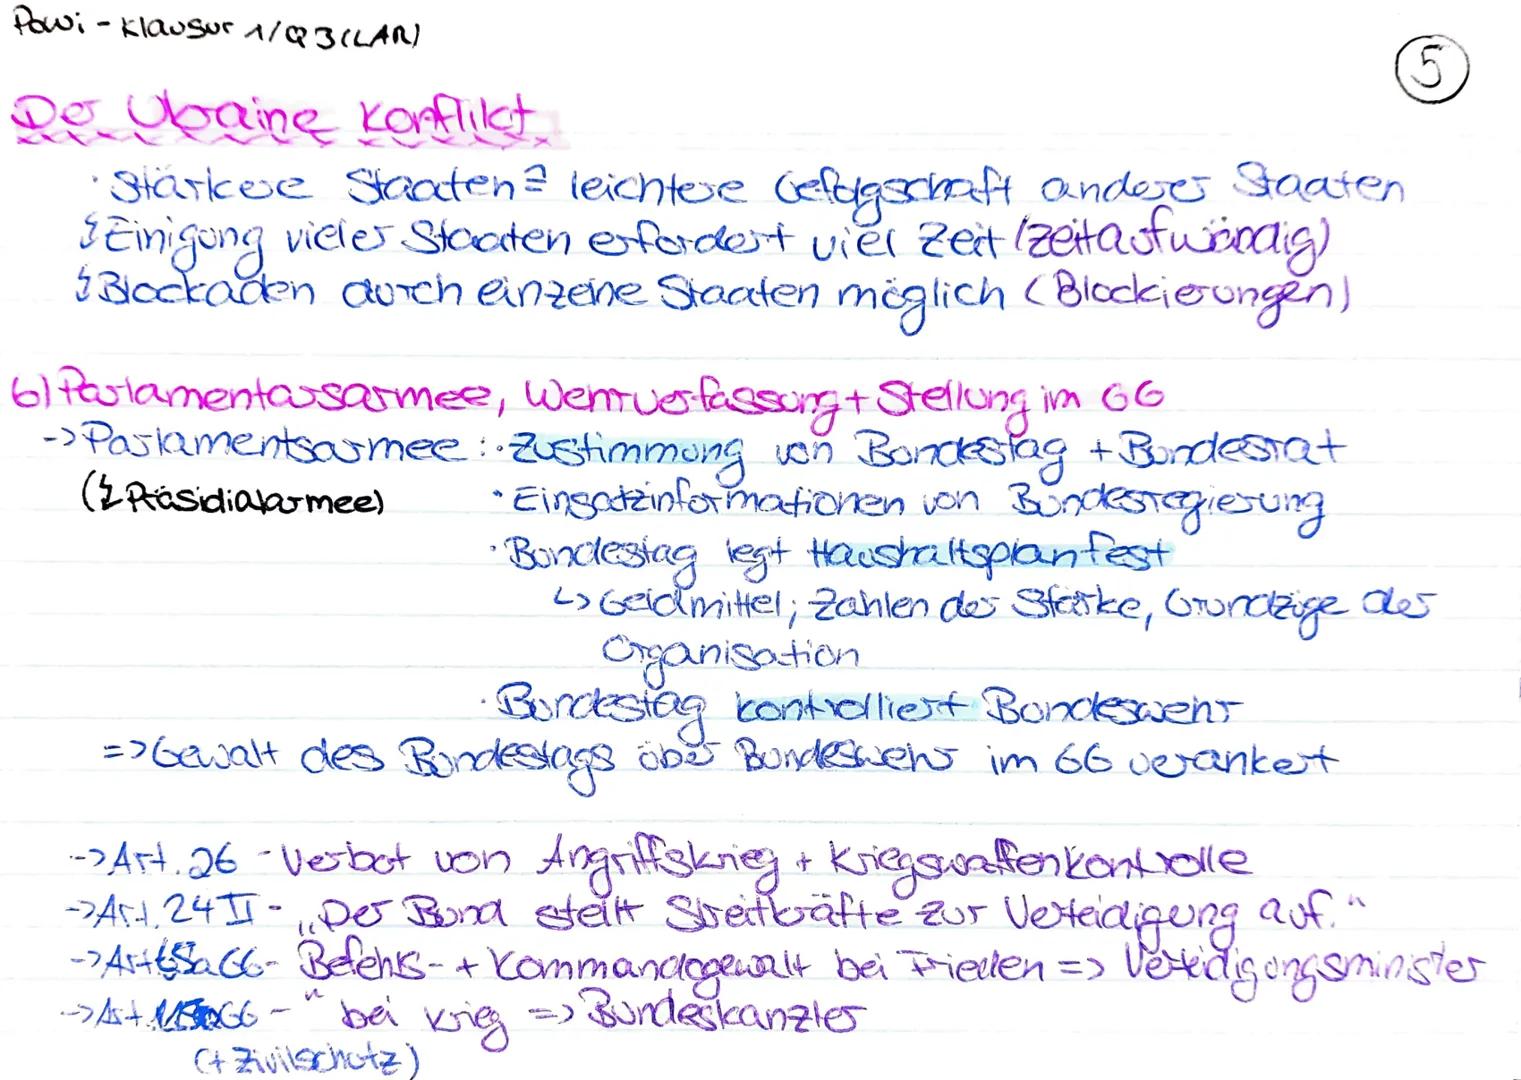 Powi - Klausur 1/Q3 (LAR)
5
Der Ukraine Konflikt
· Stärkere Staaten ≙ leichtere Gefolgschaft anderer Staaten
↯ Einigung vieler Staaten erfordert viel Zeit (zeitaufwändig)
↯ Blockaden durch einzelne Staaten möglich (Blockierungen)
6) Parlamentarsarmee, Wehrverfassung + Stellung im GG
-> Parlamentsarmee: · Zustimmung von Bundestag + Bundesrat
(↯ Präsidialarmee) · Einsatzinformationen von Bundesregierung
· Bundestag legt Haushaltsplan fest
↳ Geldmittel; Zahlen der Stärke, Grundzüge der
Organisation
· Bundestag kontrolliert Bundeswehr
=> Gewalt des Bundestags über Bundeswehr im GG verankert
-> Art. 26 - Verbot von Angriffskrieg + Kriegswaffenkontrolle
-> Art. 24 II - „Der Bund stellt Streitkräfte zur Verteidigung auf."
-> Art 65a GG - Befehls- + Kommandogewalt bei Frieden => Verteidigungsminister
-> Art. 115b GG - " bei Krieg => Bundeskanzler
(+ Zivilschutz)